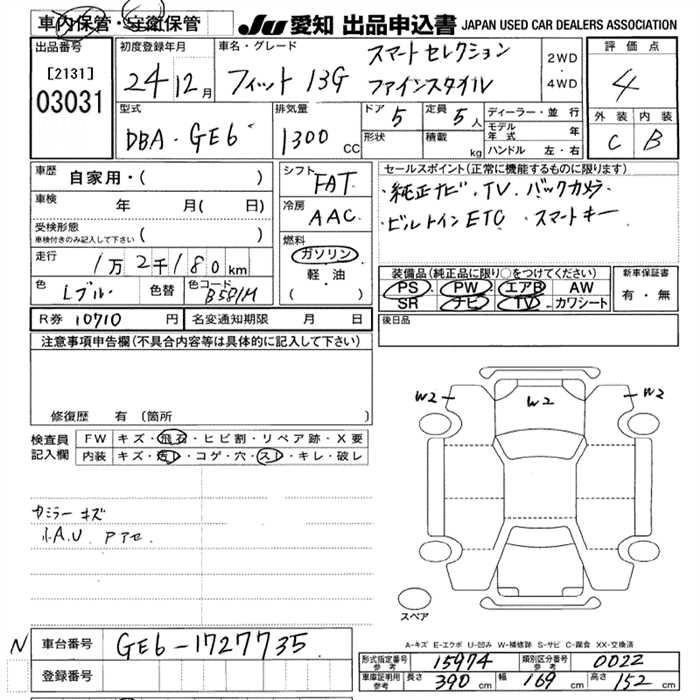 車内保管・守衛保管 JU 愛知 出品申込書 JAPAN USED CAR DEALERS ASSOCIATION
出品番号 初度登録年月 車名・グレード スマートセレクション 2WD・4WD 評価点
[2131] 24 12月 フィット 13G ファインスタイル 4
03031
型式 排気量 ドア 5 定員 5人 ディーラー・並行 外装 内装
DBA・GE6 1300CC 形状 積載 kg モデル年式 年 C B
ハンドル 左・右
車歴 自家用・( ) シフト FAT セールスポイント(正常に機能するものに限ります)
車検 年 月( 日) 冷房 AAC ・純正ナビ・TV. バックカメラ
受検形態 ・ビルトインETC スマートキー
車検付きのみ記入して下さい ( )
燃料
走行 1万2千180km ガソリン 装備品(純正品に限り○をつけてください) 新車保証書
軽・油 PS PW エアB AW 有・無
色 Lブルー 色替 色コード B581M ( ) SR ナビ TV カワシート
R券 10710 円 名変通知期限 月 日 後日品
注意事項申告欄(不具合内容等は具体的に記入して下さい)
修復歴 有(箇所
W2 W2 W2
検査員 FW キズ・飛石・ヒビ割・リペア跡・X要
記入欄 内装 キズ・汚レ・コゲ・穴・スレ・キレ・破レ
カミラーキズ
小A.U
スペア
A-キズ E-エクボ U-凹み W-補修跡 S-サビ C-腐食 XX-交換済
N 車台番号 GE6-1727735
登録番号
形式指定番号 参考 15974 類別区分番号 参考 0022
車庫証明用 参考 長さ 390cm 幅 169cm 高さ 152cm